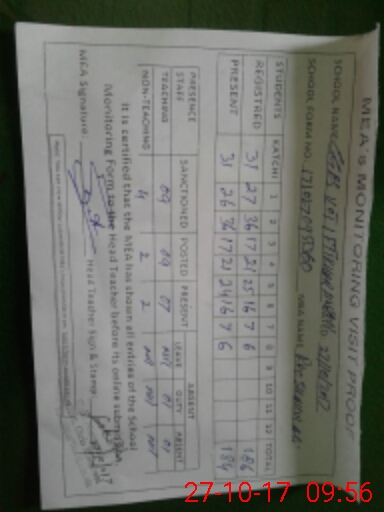 MEA's MONITORING VISIT PROOF
SCHOOL NAME
SCHOOL FORM NO. MEA NAME
STUDENTS KATCHI 1 2 3 4 5 6 7 8 9 10 11 12 TOTAL
REGISTRED 31 27 36 17 21 25 16 7 6 186
PRESENT 31 26 36 17 21 24 16 7 6 184
PRESENCE SANCTIONED POSTED PRESENT ABSENT
STAFF LEAVE DUTY ABSENT
TEACHING 09 09 07 Nil 01 01
NON-TEACHING 4 2 2 Nil Nil Nil
It is certified that the MEA has shown all entries of the School
Monitoring Form to the Head Teacher before its online submission
MEA Signature: Head Teacher Sign & Stamp:
27-10-17 09:56